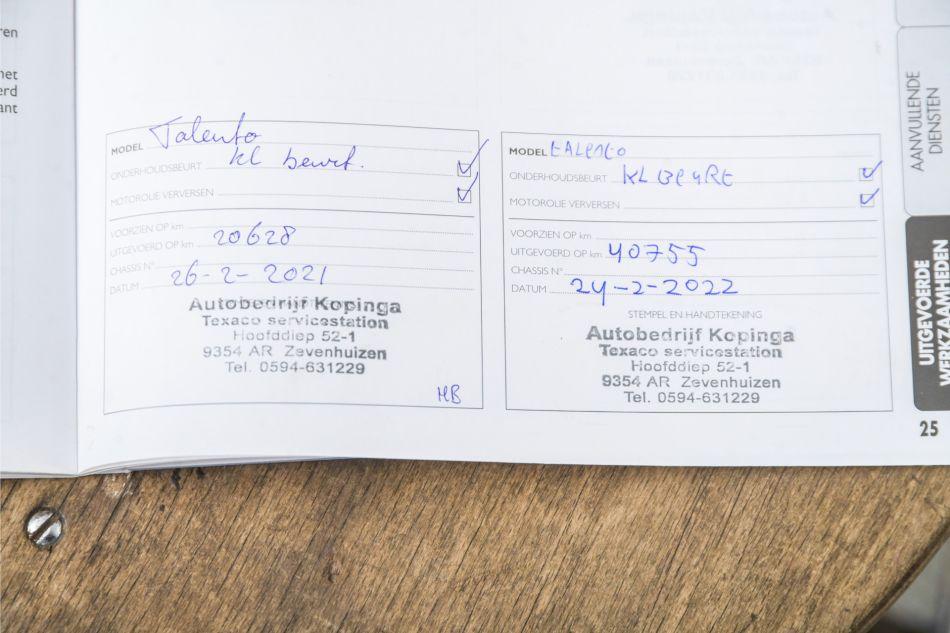 ren
net
erd
ant
MODEL Talento
ONDERHOUDSBEURT kl beurt.
MOTOROLIE VERVERSEN
VOORZIEN OP km
UITGEVOERD OP km 20628
CHASSIS N°
DATUM 26-2-2021
Autobedrijf Kopinga
Texaco servicestation
Hoofddiep 52-1
9354 AR Zevenhuizen
Tel. 0594-631229
HB
MODEL tALENtO
ONDERHOUDSBEURT KL BEURt
MOTOROLIE VERVERSEN
VOORZIEN OP km
UITGEVOERD OP km 40755
CHASSIS N°
DATUM 24-2-2022
STEMPEL EN HANDTEKENING
Autobedrijf Kopinga
Texaco servicestation
Hoofddiep 52-1
9354 AR Zevenhuizen
Tel. 0594-631229
AANVULLENDE
DIENSTEN
UITGEVOERDE
WERKZAAMHEDEN
25